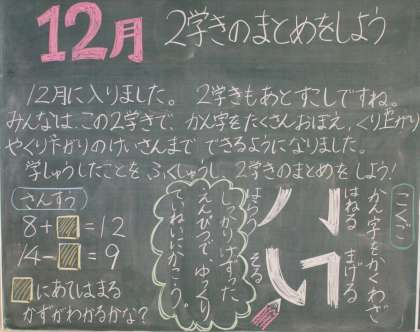 12月 2学きのまとめをしよう
12月に入りました。 2学きもあとすこしですね。
みんなは、この2学きで、かん字をたくさんおぼえ、くり上がり
やくり下がりのけいさんまで できるようになりました。
学しゅうしたことを ふくしゅうし、2学きのまとめを しよう!
さんすう
8+□=12
14-□=9
□にあてはまる
かずがわかるかな?
こくご
かん字をかくわざ
はねる まげる
はらう そる
しっかりけずった
えんぴつで、ゆっくり
ていねいにかこう。